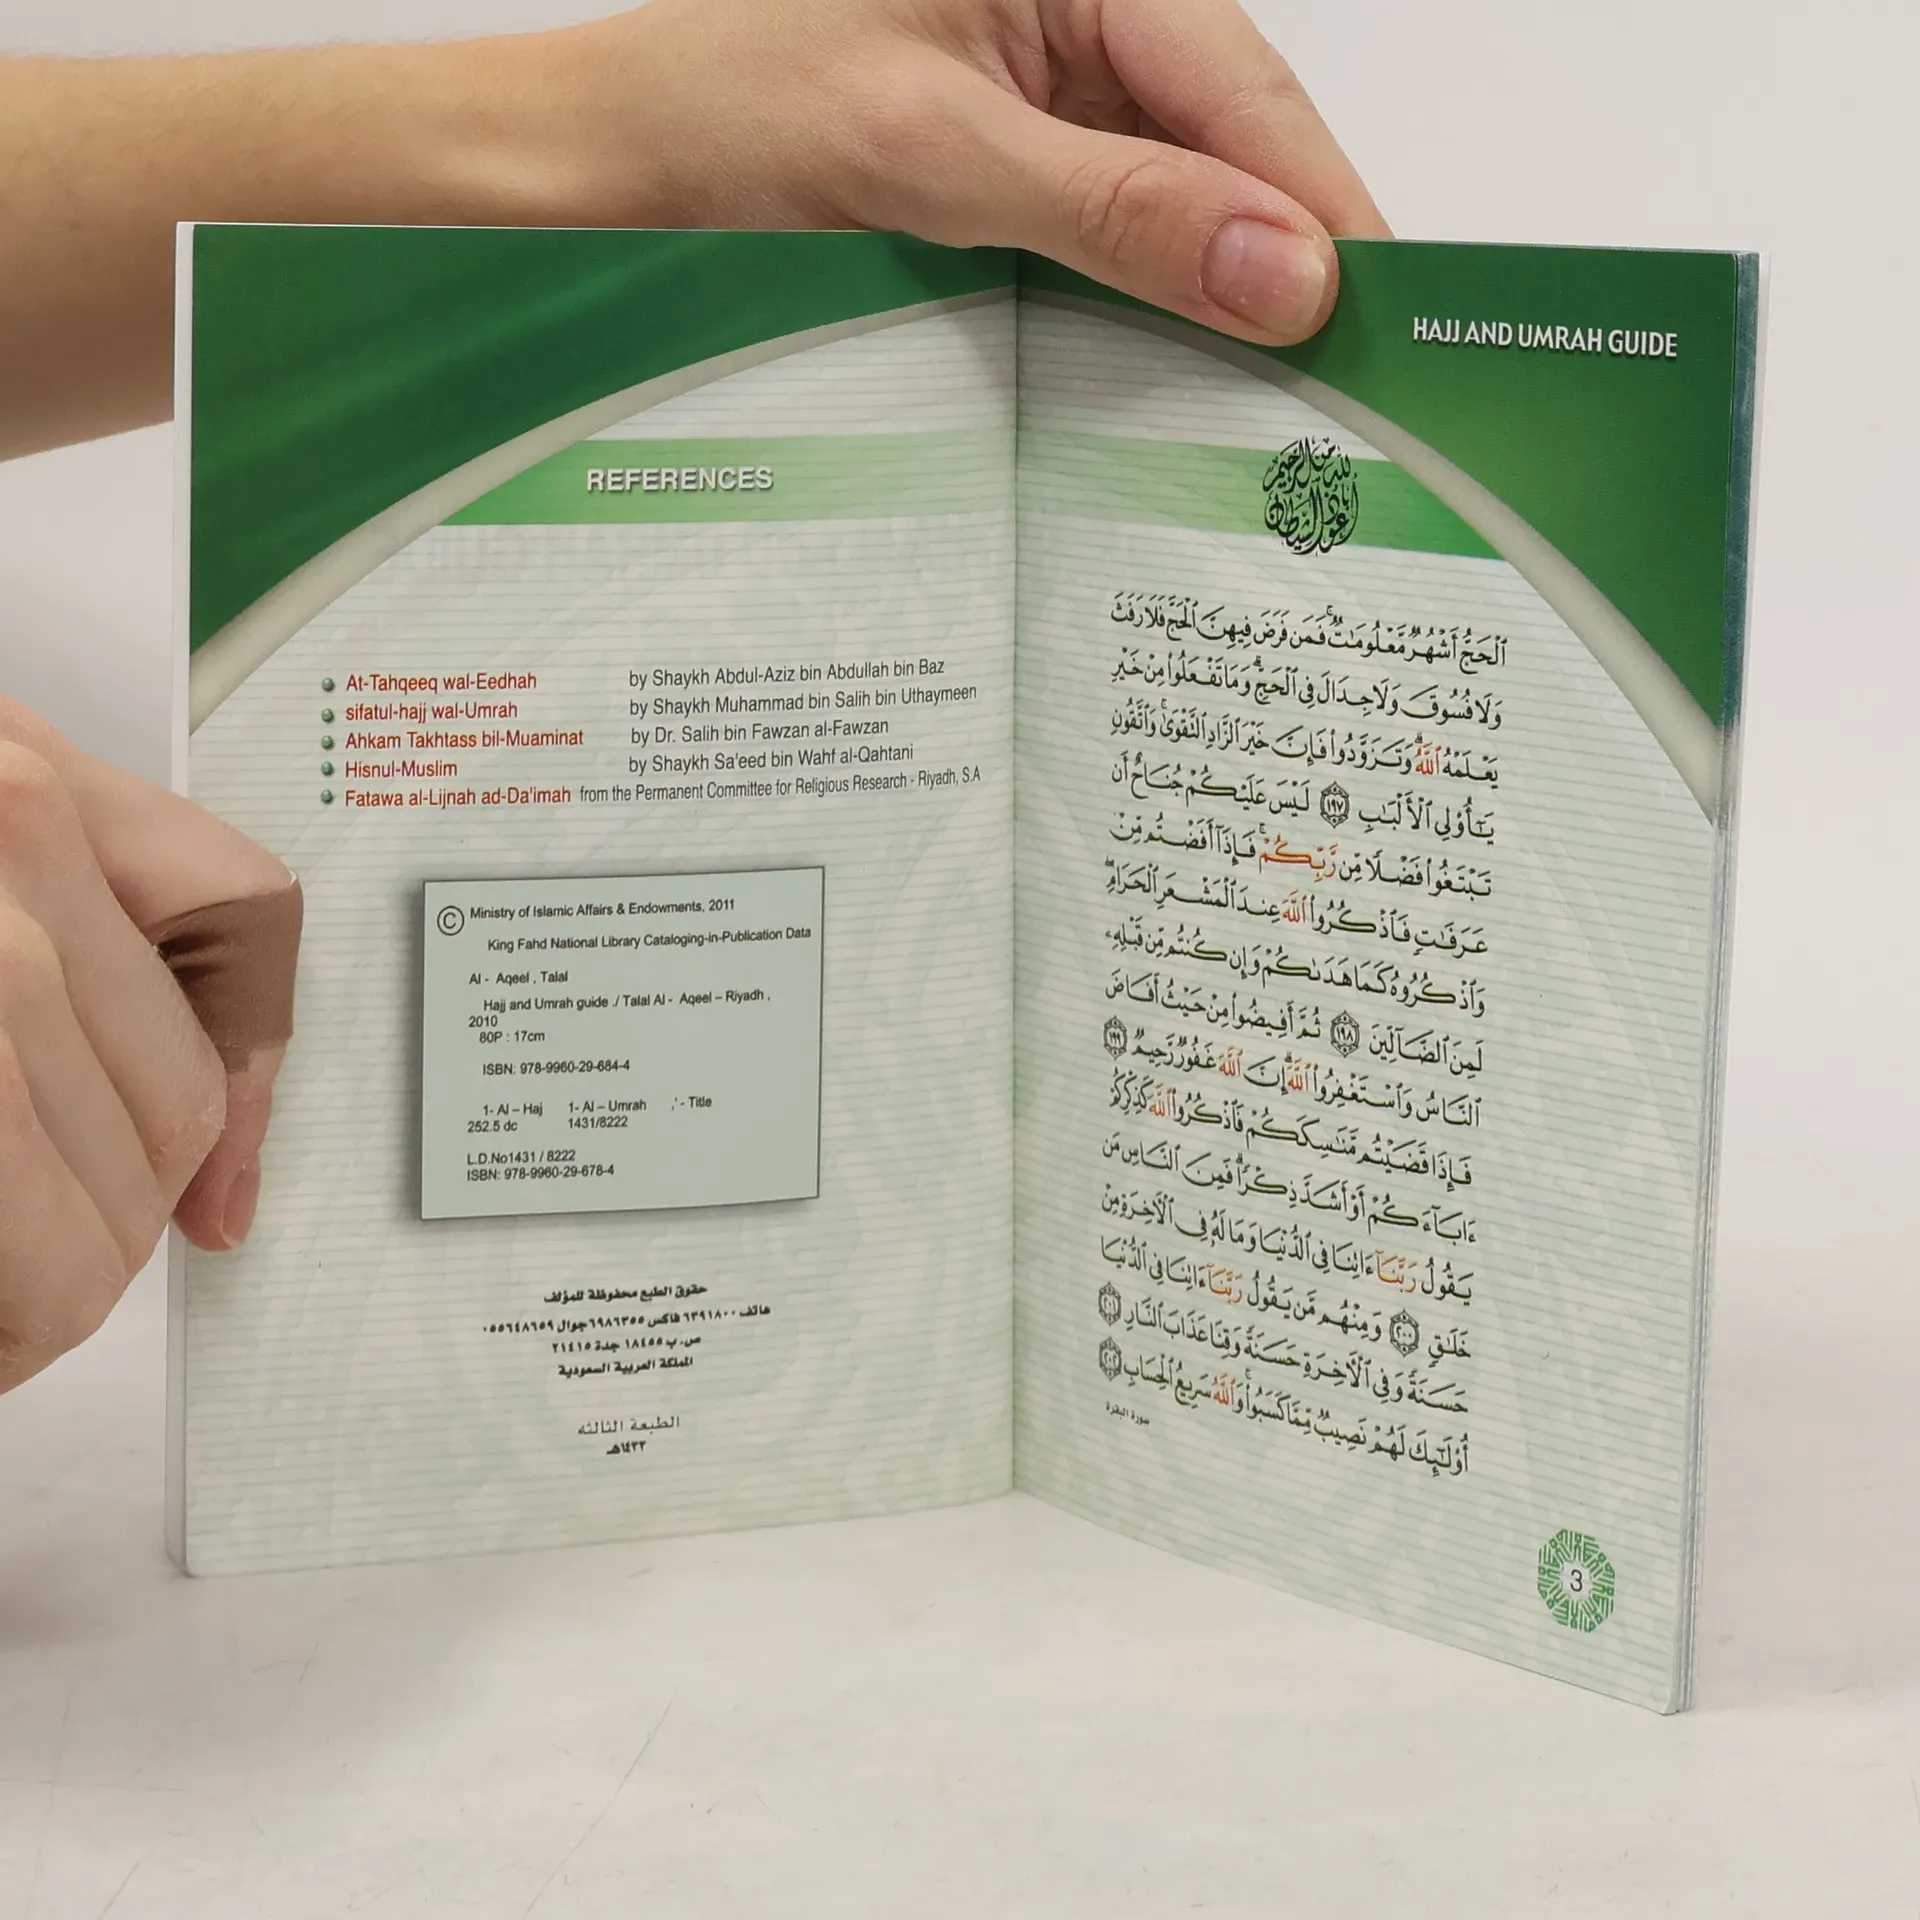 REFERENCES
At-Tahqeeq wal-Eedhah by Shaykh Abdul-Aziz bin Abdullah bin Baz
sifatul-hajj wal-Umrah by Shaykh Muhammad bin Salih bin Uthaymeen
Ahkam Takhtass bil-Muaminat by Dr. Salih bin Fawzan al-Fawzan
Hisnul-Muslim by Shaykh Sa'eed bin Wahf al-Qahtani
Fatawa al-Lijnah ad-Da'imah from the Permanent Committee for Religious Research - Riyadh, S.A
© Ministry of Islamic Affairs & Endowments, 2011
King Fahd National Library Cataloging-in-Publication Data
Al - Aqeel , Talal
Hajj and Umrah guide ./ Talal Al - Aqeel – Riyadh ,
2010
80P : 17cm
ISBN: 978-9960-29-684-4
1- Al – Haj 1- Al – Umrah ,' - Title
252.5 dc 1431/8222
L.D.No1431 / 8222
ISBN: 978-9960-29-678-4
حقوق الطبع محفوظة للمؤلف
هاتف ٦٣٩١٨٠٠ فاكس ٦٩٨٦٣٥٥ جوال ٠٥٥٦٤٨٦٥٩
ص.ب ١٨٤٥٥ جدة ٢١٤١٥
المملكة العربية السعودية
الطبعة الثالثه
١٤٣٢هـ
HAJJ AND UMRAH GUIDE
أعوذ بالله من الشيطان الرجيم
ٱلْحَجُّ أَشْهُرٌ مَّعْلُومَٰتٌ ۚ فَمَن فَرَضَ فِيهِنَّ ٱلْحَجَّ فَلَا رَفَثَ
وَلَا فُسُوقَ وَلَا جِدَالَ فِى ٱلْحَجِّ ۗ وَمَا تَفْعَلُوا۟ مِنْ خَيْرٍ
يَعْلَمْهُ ٱللَّهُ ۗ وَتَزَوَّدُوا۟ فَإِنَّ خَيْرَ ٱلزَّادِ ٱلتَّقْوَىٰ ۚ وَٱتَّقُونِ
يَٰٓأُو۟لِى ٱلْأَلْبَٰبِ ١٩٧ لَيْسَ عَلَيْكُمْ جُنَاحٌ أَن
تَبْتَغُوا۟ فَضْلًا مِّن رَّبِّكُمْ ۚ فَإِذَآ أَفَضْتُم مِّنْ
عَرَفَٰتٍ فَٱذْكُرُوا۟ ٱللَّهَ عِندَ ٱلْمَشْعَرِ ٱلْحَرَامِ ۖ
وَٱذْكُرُوهُ كَمَا هَدَىٰكُمْ وَإِن كُنتُم مِّن قَبْلِهِۦ
لَمِنَ ٱلضَّآلِّينَ ١٩٨ ثُمَّ أَفِيضُوا۟ مِنْ حَيْثُ أَفَاضَ
ٱلنَّاسُ وَٱسْتَغْفِرُوا۟ ٱللَّهَ ۚ إِنَّ ٱللَّهَ غَفُورٌ رَّحِيمٌ ١٩٩
فَإِذَا قَضَيْتُم مَّنَٰسِكَكُمْ فَٱذْكُرُوا۟ ٱللَّهَ كَذِكْرِكُمْ
ءَابَآءَكُمْ أَوْ أَشَدَّ ذِكْرًا ۗ فَمِنَ ٱلنَّاسِ مَن
يَقُولُ رَبَّنَآ ءَاتِنَا فِى ٱلدُّنْيَا وَمَا لَهُۥ فِى ٱلْءَاخِرَةِ مِنْ
خَلَٰقٍ ٢٠٠ وَمِنْهُم مَّن يَقُولُ رَبَّنَآ ءَاتِنَا فِى ٱلدُّنْيَا
حَسَنَةً وَفِى ٱلْءَاخِرَةِ حَسَنَةً وَقِنَا عَذَابَ ٱلنَّارِ ٢٠١
أُو۟لَٰٓئِكَ لَهُمْ نَصِيبٌ مِّمَّا كَسَبُوا۟ ۚ وَٱللَّهُ سَرِيعُ ٱلْحِسَابِ ٢٠٢
سورة البقرة
3